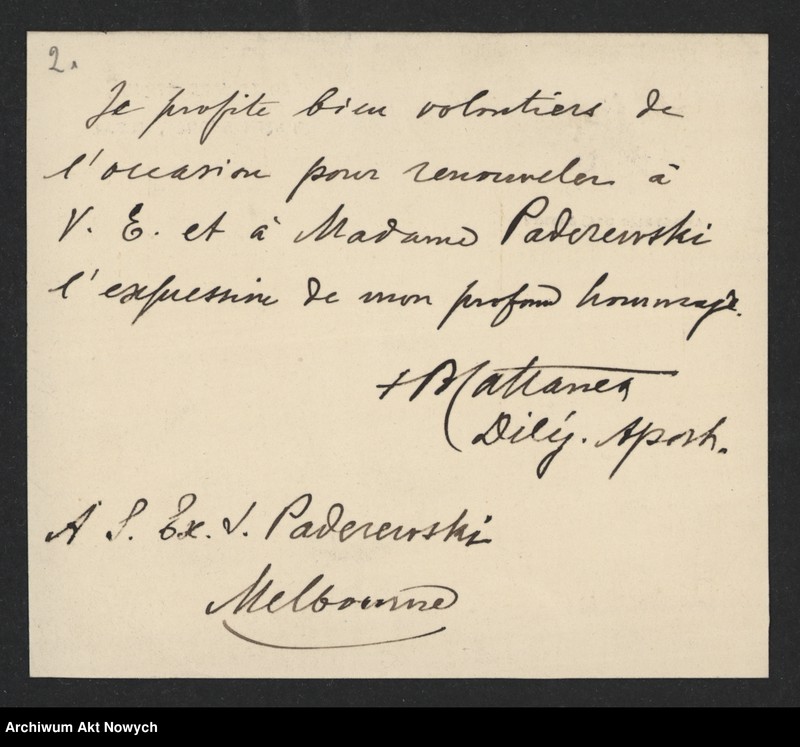 2.
Je profite bien volontiers de
l'occasion pour renouveler à
V. E. et à Madame Paderewski
l'expression de mon profond hommage.
+ B Cattaneo
Delég. Apost.
A S. Ex. J. Paderewski
Melbourne
Archiwum Akt Nowych